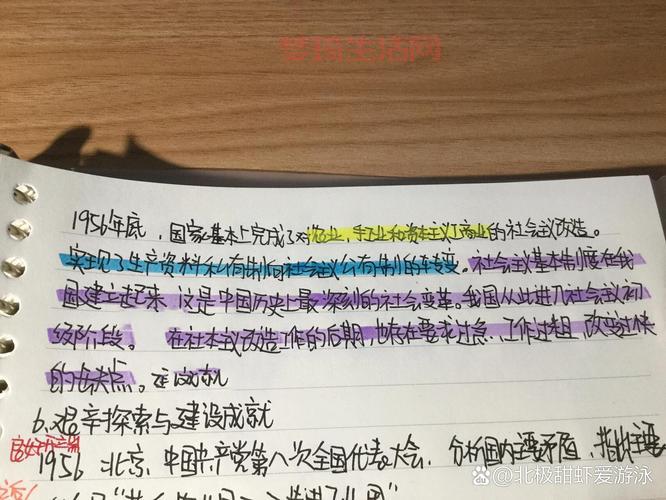 梦琦生活网
1956年底,国家基本上完成了对农业、手工业和资本主义工商业的社会主义改造。
实现了生产资料私有制向社会主义公有制的转变。社会主义基本制度在我
国建立起来,这是中国历史上最深刻的社会变革。我国从此进入社会主义初
级阶段。在社本主义改造工作的后期,也存在要求过急、工作过粗、改变过快
的缺点。
6.艰辛探索与建设成就
1956 北京,中国共产党第八次全国代表大会,分析国内主要矛盾,指出主要
@北极甜虾爱游泳